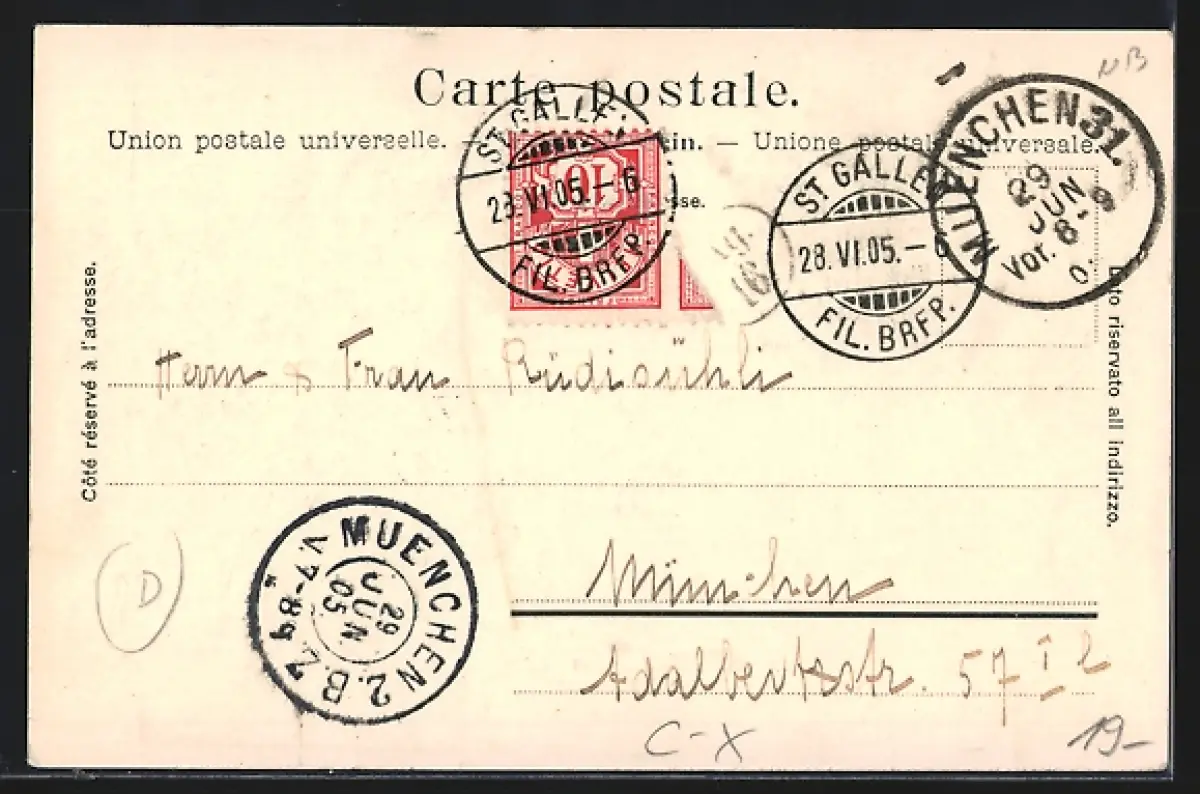 NB
Carte postale.
Union postale universelle. — ein. — Unione postale universale.
sse.
ST. GALLEN
28.VI.05.–6
FIL. BRFP.
10
ST. GALLEN
28.VI.05.–6
FIL. BRFP.
MUENCHEN 31.
29
JUN
Vor. 8-9
0
Côté réservé à l'adresse.
Lato riservato all indirizzo.
Herrn & Frau Rüdisühli
München
Adalbertstr. 57 I l
MUENCHEN 2.B.Z.
V.7-8
29
JUN
05
D
C-X
19-